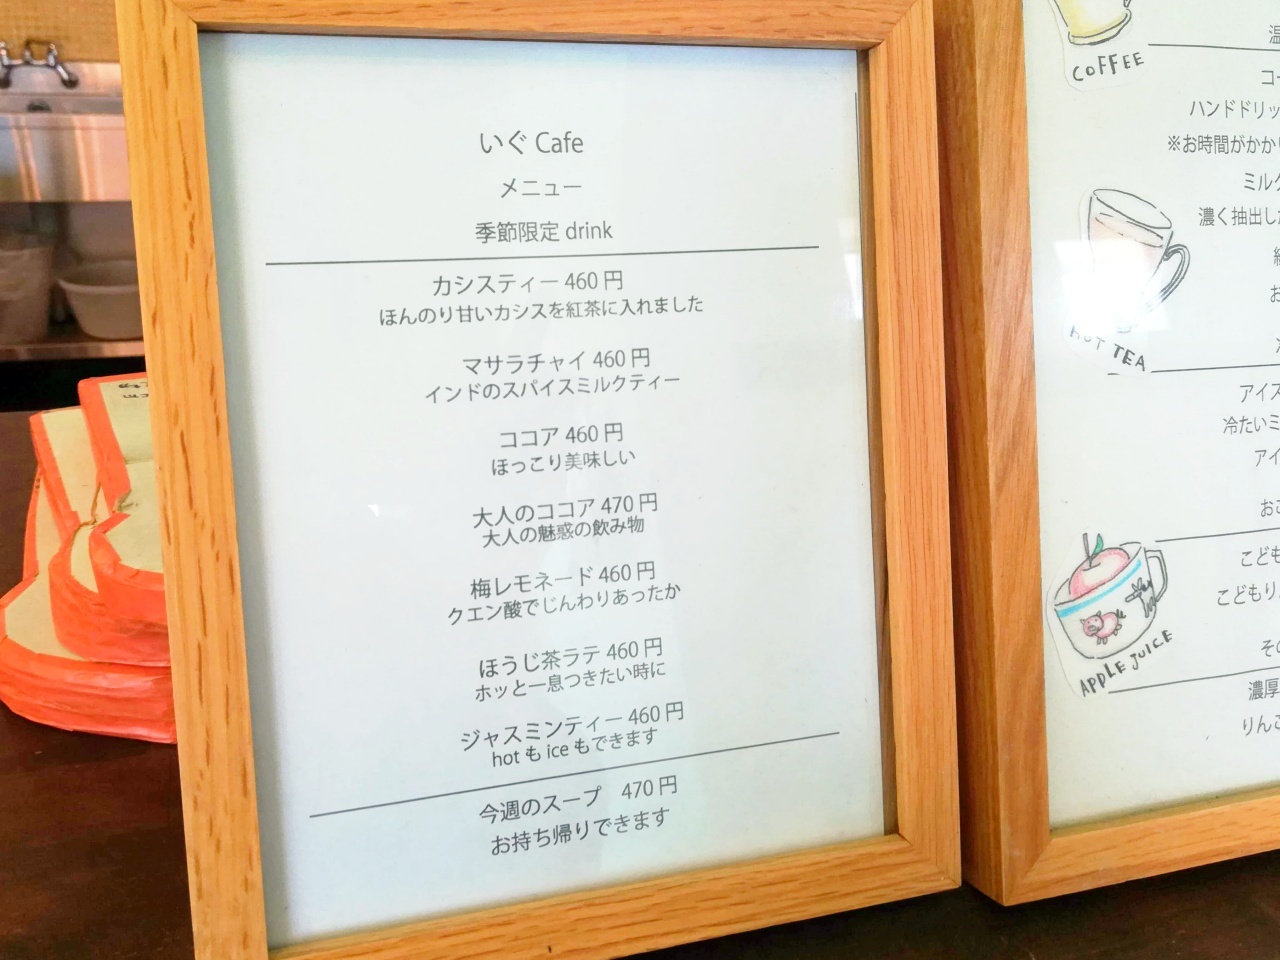 いぐ Cafe
メニュー
季節限定 drink
カシスティー 460 円
ほんのり甘いカシスを紅茶に入れました
マサラチャイ 460 円
インドのスパイスミルクティー
ココア 460 円
ほっこり美味しい
大人のココア 470 円
大人の魅惑の飲み物
梅レモネード 460 円
クエン酸でじんわりあったか
ほうじ茶ラテ 460 円
ホッと一息つきたい時に
ジャスミンティー 460 円
hot も ice もできます
今週のスープ 470 円
お持ち帰りできます
COFFEE
温
コー
ハンドドリッ
※お時間がかかり
ミルク
濃く抽出した
HOT TEA
アイス
冷たいミ
アイ
おこ
こども
こどもり
APPLE JUICE
その
濃厚
りんご